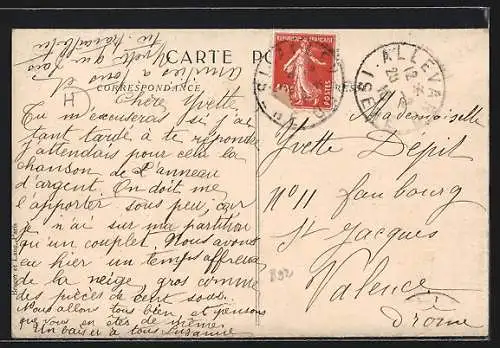 CARTE PO
CORRESPONDANCE
Chère Yvette
Tu m'excuseras si j'ai
tant tardé à te répondre
j'attendais pour cela la
chanson de L'anneau
d'argent. On doit me
l'apporter sous peu, car
je n'ai sur ma partition
qu'un couplet. Nous avons
eu hier un temps affreux
de la neige, gros comme
des pièces de cent sous.
Nous allons tous bien, et pensons
que vous en êtes de même.
Un baiser à tous Suzanne
amitiés à tous et
H
POSTES
ALLEVARD
ISÈRE
Mademoiselle
Yvette Depit
No 11 faubourg
St Jacques
Valence
Drôme
892